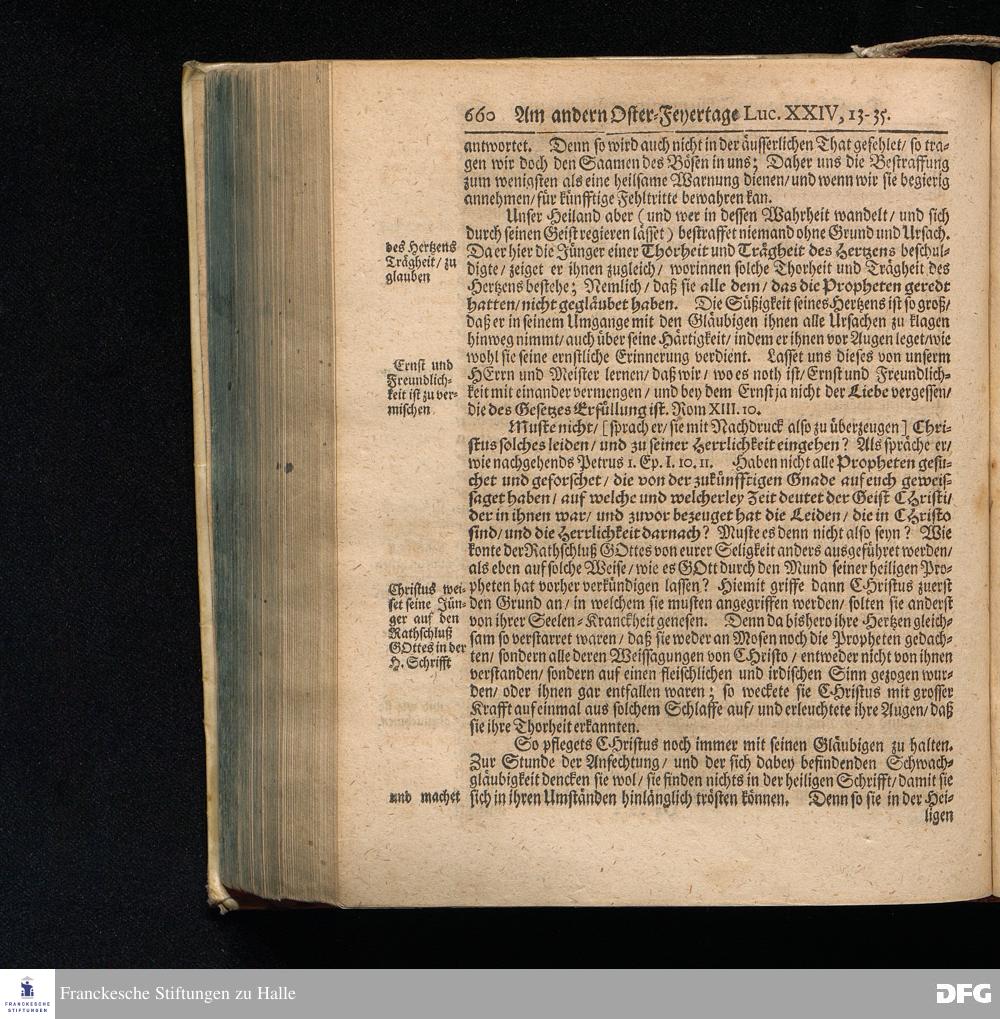 660 Am andern Oster-Feyertage Luc. XXIV, 13-35.
antwortet. Denn so wird auch nicht in der äusserlichen That gefehlet/ so tra-
gen wir doch den Saamen des Bösen in uns; Daher uns die Bestraffung
zum wenigsten als eine heilsame Warnung dienen/ und wenn wir sie begierig
annehmen/ für künfftige Fehltritte bewahren kan.
Unser Heiland aber (und wer in dessen Wahrheit wandelt/ und sich
durch seinen Geist regieren lässet) bestraffet niemand ohne Grund und Ursach.
des Hertzens
Trägheit/ zu
glauben
Da er hier die Jünger einer Thorheit und Trägheit des Hertzens beschul-
digte/ zeiget er ihnen zugleich/ worinnen solche Thorheit und Trägheit des
Hertzens bestehe; Nemlich/ daß sie alle dem/ das die Propheten geredt
hatten/ nicht gegläubet haben. Die Süßigkeit seines Hertzens ist so groß/
daß er in seinem Umgange mit den Gläubigen ihnen alle Ursachen zu klagen
hinweg nimmt/ auch über seine Härtigkeit/ indem er ihnen vor Augen leget/ wie
wohl sie seine ernstliche Erinnerung verdient. Lasset uns dieses von unserm
Ernst und
Freundlich-
keit ist zu ver-
mischen
HErrn und Meister lernen/ daß wir/ wo es noth ist/ Ernst und Freundlich-
keit mit einander vermengen/ und bey dem Ernst ja nicht der Liebe vergessen/
die des Gesetzes Erfüllung ist. Rom XIII. 10.
Muste nicht/ [sprach er/ sie mit Nachdruck also zu überzeugen] Chri-
stus solches leiden/ und zu seiner Herrlichkeit eingehen? Als spräche er/
wie nachgehends Petrus 1. Ep. I. 10. 11. Haben nicht alle Propheten gesu-
chet und geforschet/ die von der zukünfftigen Gnade auf euch geweis-
saget haben/ auf welche und welcherley Zeit deutet der Geist CHristi/
der in ihnen war/ und zuvor bezeuget hat die Leiden/ die in CHristo
sind/ und die Herrlichkeit darnach? Muste es denn nicht also seyn? Wie
konte der Rathschluß GOttes von eurer Seligkeit anders ausgeführet werden/
als eben auf solche Weise/ wie es GOtt durch den Mund seiner heiligen Pro-
Christus wei-
set seine Jün-
ger auf den
Rathschluß
GOttes in der
H. Schrifft
pheten hat vorher verkündigen lassen? Hiemit griffe dann CHristus zuerst
den Grund an/ in welchem sie musten angegriffen werden/ solten sie anderst
von ihrer Seelen-Kranckheit genesen. Denn da bishero ihre Hertzen gleich-
sam so verstarret waren/ daß sie weder an Mosen noch die Propheten gedach-
ten/ sondern alle deren Weissagungen von CHristo/ entweder nicht von ihnen
verstanden/ sondern auf einen fleischlichen und irdischen Sinn gezogen wur-
den/ oder ihnen gar entfallen waren; so weckete sie CHristus mit grosser
Krafft auf einmal aus solchem Schlaffe auf/ und erleuchtete ihre Augen/ daß
sie ihre Thorheit erkannten.
So pflegets CHristus noch immer mit seinen Gläubigen zu halten.
Zur Stunde der Anfechtung/ und der sich dabey befindenden Schwach-
gläubigkeit dencken sie wol/ sie finden nichts in der heiligen Schrifft/ damit sie
und machet
sich in ihren Umständen hinlänglich trösten können. Denn so sie in der Hei-
ligen
FRANCKESCHE
STIFTUNGEN
Franckesche Stiftungen zu Halle
DFG